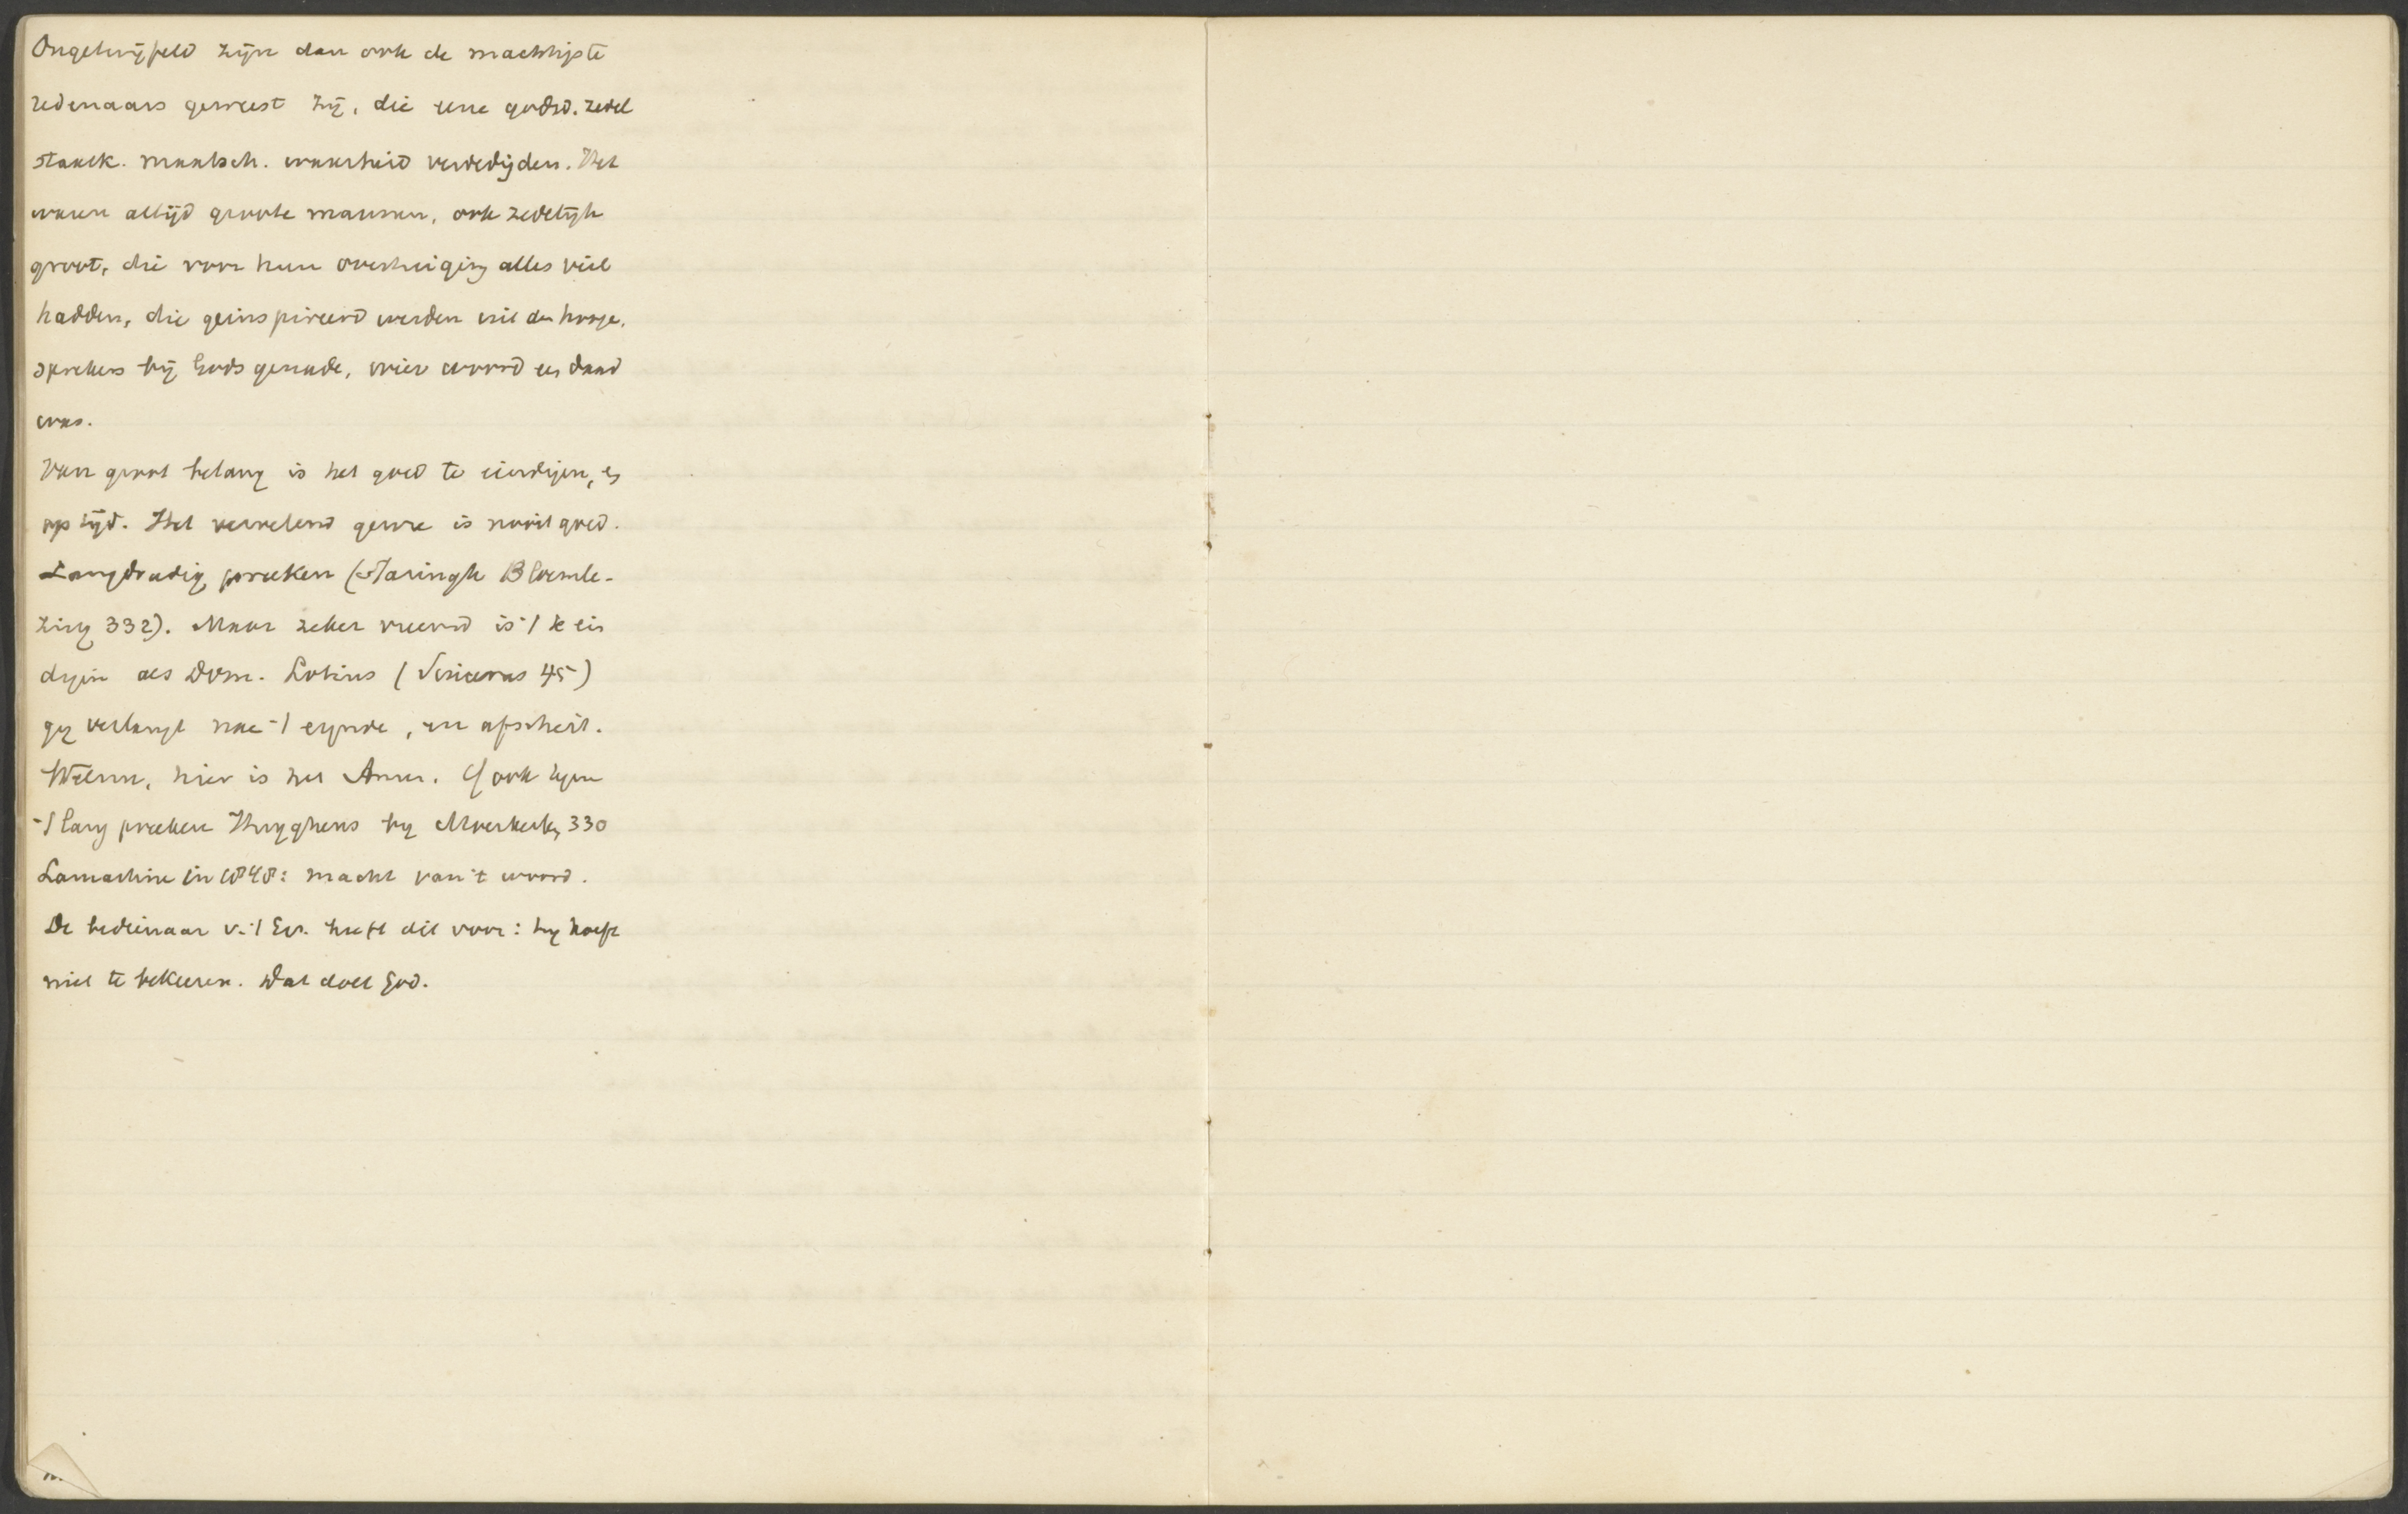 Ongetwijfeld zijn dan ook de machtigste
redenaars geweest zij, die eene godsd. zedel
staatk. maatsch. waarheid verdedigden. Het
waren altijd groote mannen, ook zedelijk
groot, die voor hun overtuiging alles veil
hadden, die geinspireerd werden uit den hooge,
sprekers bij Gods genade, wier woord een daad
was.
Van groot belang is het goed te eindigen, en
op tijd. Het vervelend genre is nooit goed.
Langdradig preeken (Staringh Bloemle-
zing 332). Maar zeker vreemd is 't te ein
digen als Dom. Lotius ( 45)
gy verlangt nae 't eynde, en afscheit.
Welnu, hier is het Amen. Cf ook tegen
't lang preeken Huyghens by Moerkerken 330
Lamartine in 1848: macht van 't woord.
De bedienaar v. 't Ev. heeft dit voor: hy hoeft
niet te bekeeren. Dat doet God.